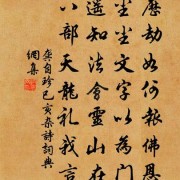 历劫如何報佛恩
塵塵文字以為門
遥知法會靈山在
八部天龍禮我言
龚自珍己亥杂詩詞典
網集